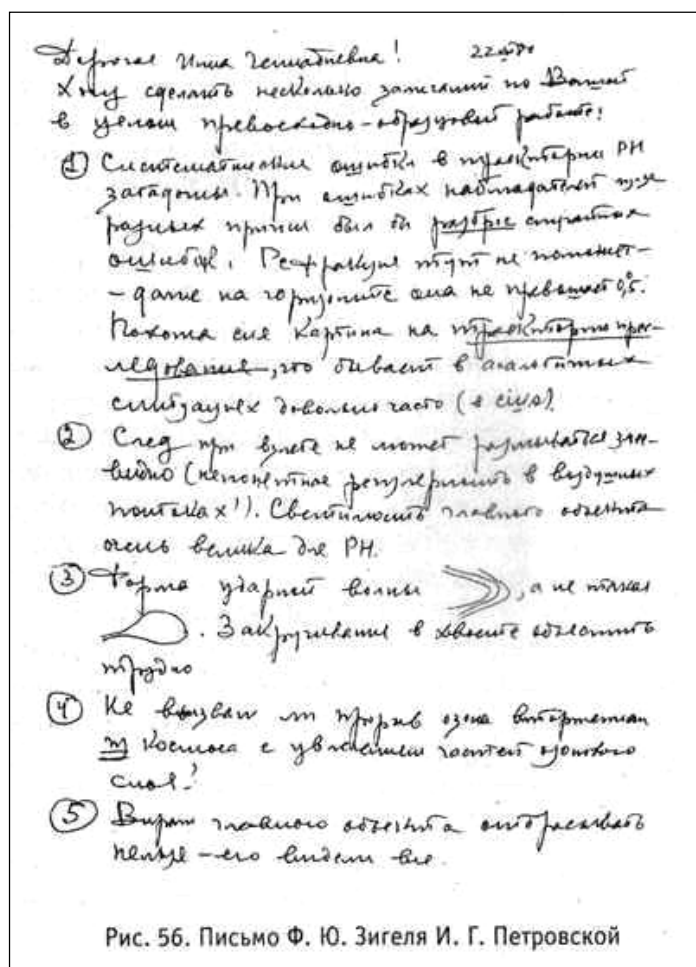 Дорогая Инна Геннадиевна!
Хочу сделать несколько замечаний по Вашей
в целом превосходно-образцовой работе:
① Систематические ошибки в траектории РН
загадочны. При ошибках наблюдателей из-за
разных причин был бы разброс
ошибок. Рефракция тут не поможет-
- даже на горизонте она не превышает 0,5°.
Похожа сия картина на траекторию прес-
ледования, что бывает в аналогичных
ситуациях довольно часто
② След при взлете не может размываться
видно (непонятная в воздушных
потоках!). Светимость главного объекта
очень велика для РН.
③ Форма ударной волны , а не такая
. Закручивание в хвосте объяснить
трудно
④ Не вызван ли прорыв озона вторжением
из Космоса с увлечением частей озонового
слоя?
⑤ Вираж главного объекта отбрасывать
нельзя - его видели все.
Рис. 56. Письмо Ф. Ю. Зигеля И. Г. Петровской